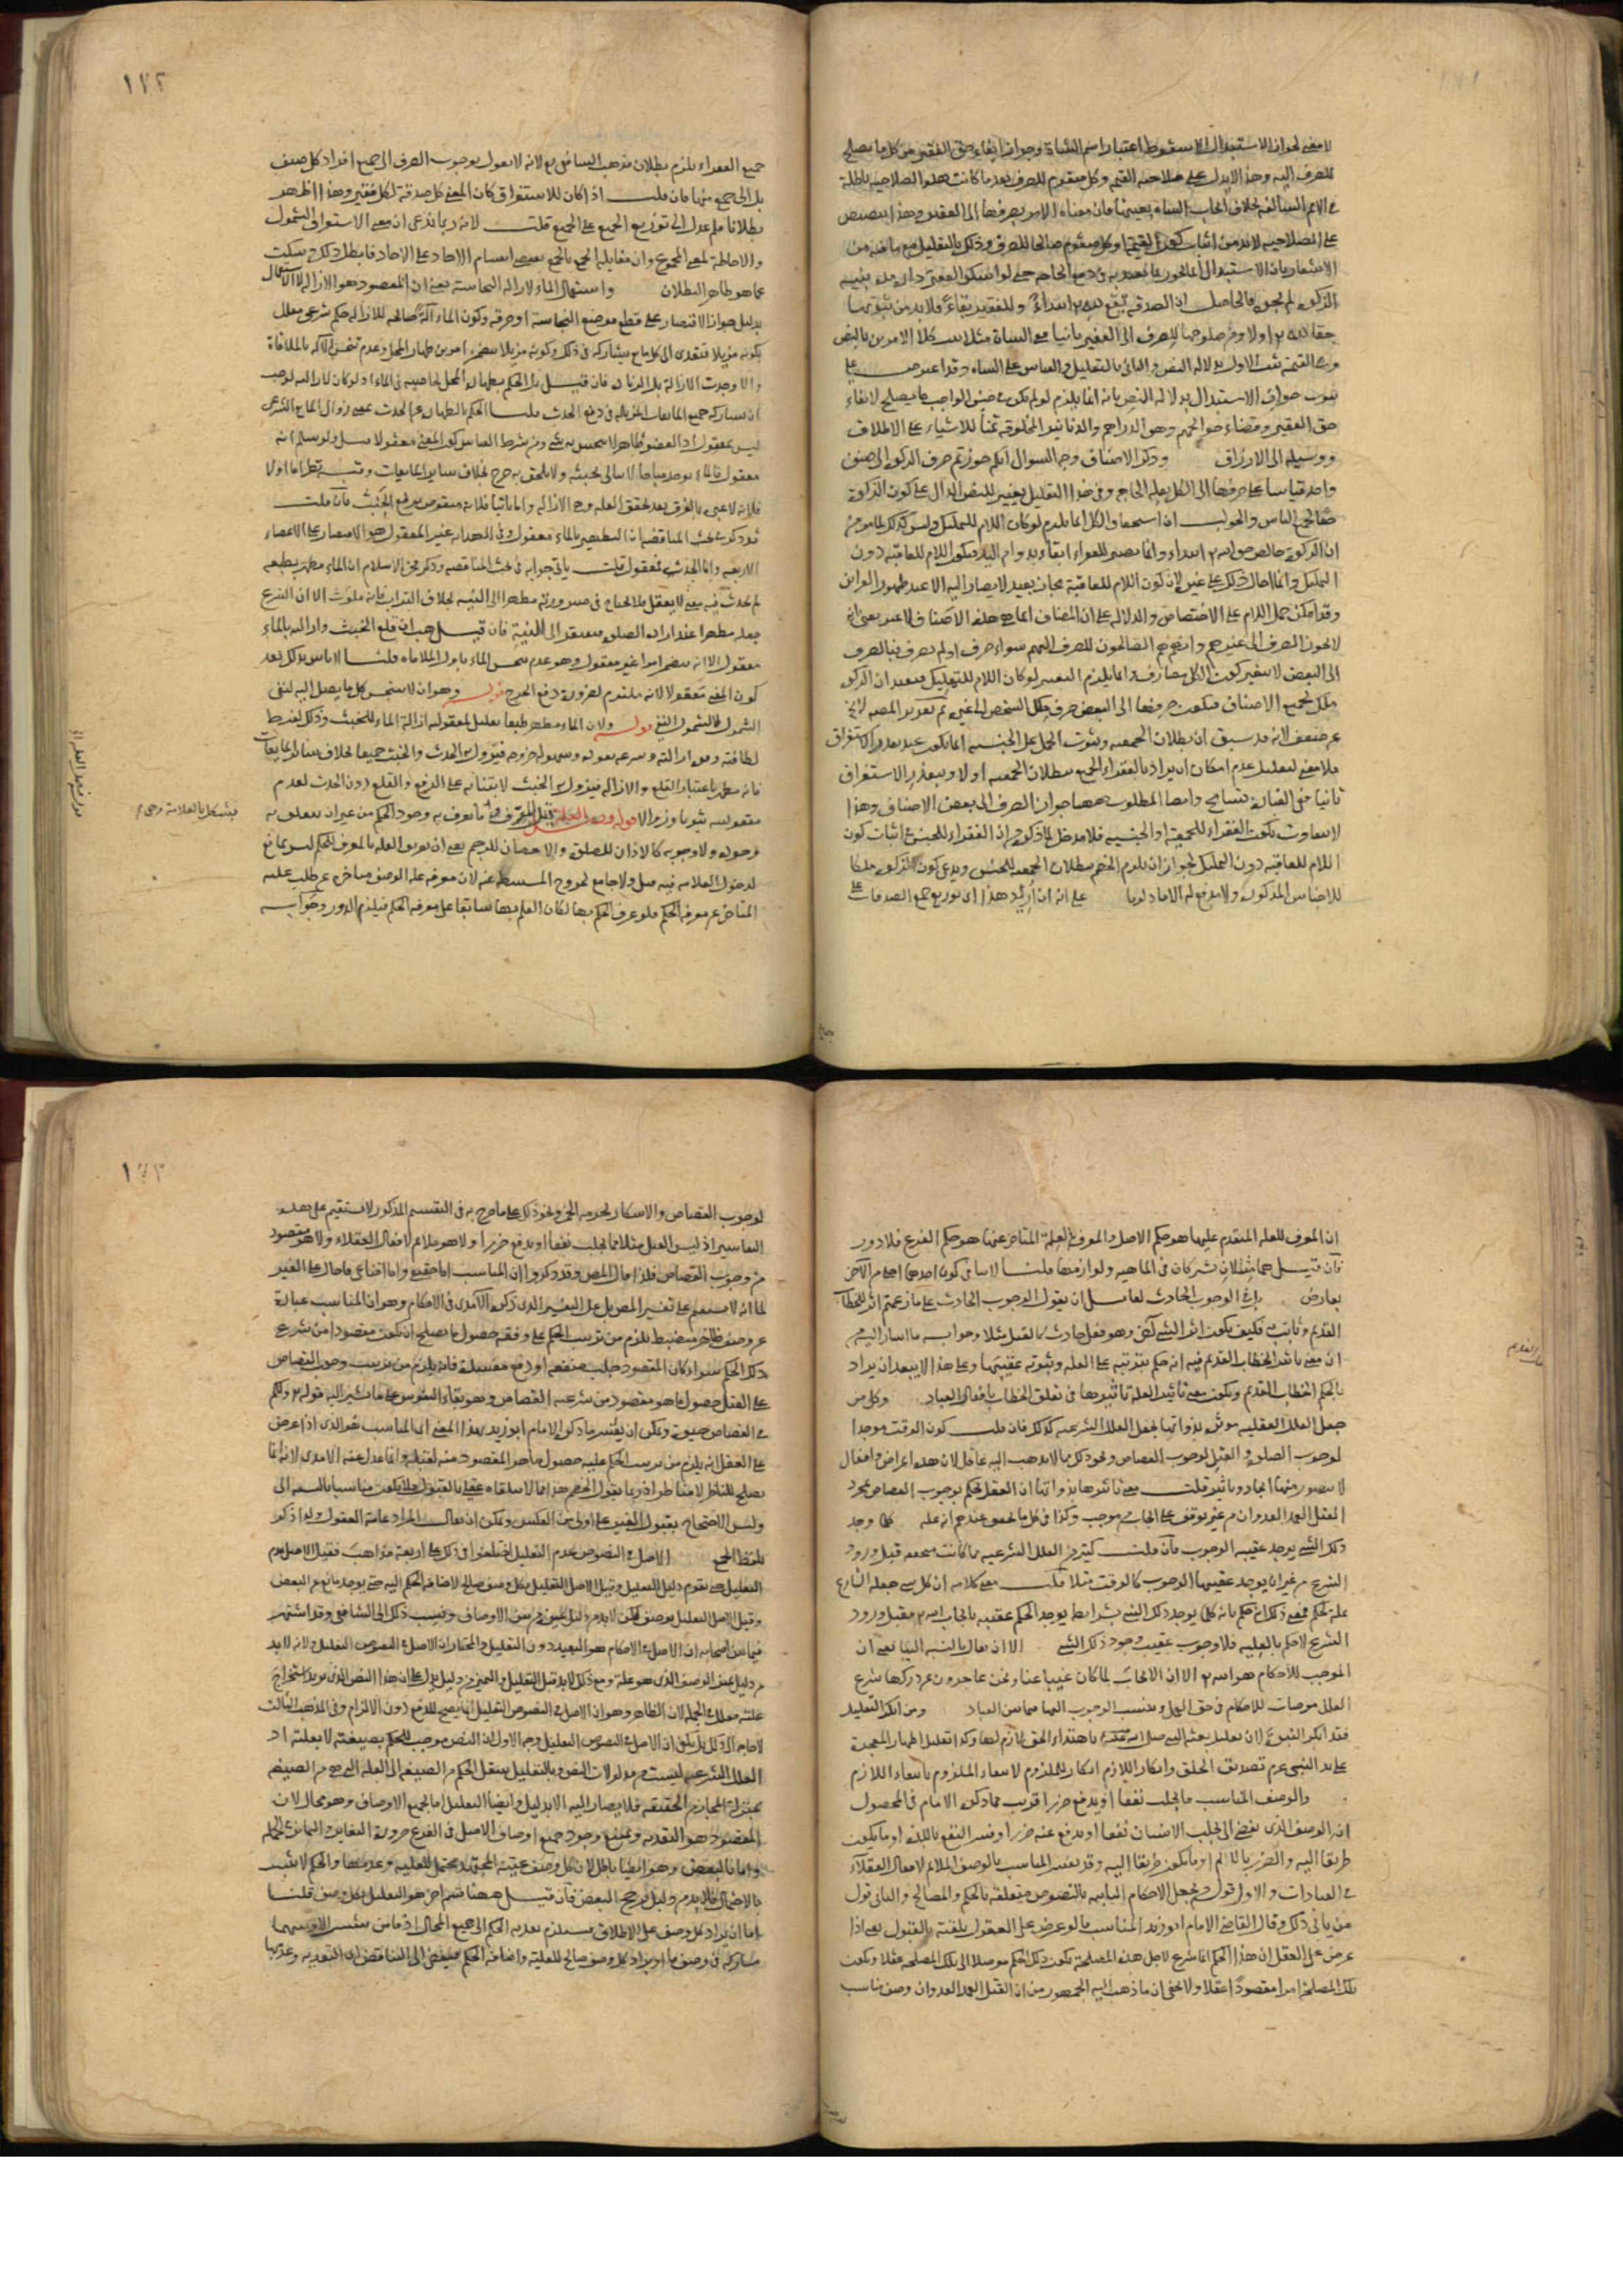 لا معنى لجواز الاستبدال الا سقوط اعتبار اسم الشاة وجواز ايفاء حق الفقير من كل ما يصلح
للصرف اليه وهذا لا يدل على صلاحية القيمة وكل متقوم للصرف بعد ما كانت هذه الصلاحية باطلة
في الامم السالفة بخلاف ايجاب الشاة بعينها فان معناه الامر بصرفها الى الفقير وهذا تنصيص
على الصلاحية لابد من اثبات كون القيمة وكل متقوم صالحا للصرف وذلك بالتعليل مع ما فيه من
الاشعار بان الاستبدال انما يجوز بما يعتد به في دفع الحاجة حتى لو اسكن الفقير داره مدة بنية
الزكوة لم يجز فالحاصل ان الصدقة تقع لله تع ابتداء وللفقير بقاء فلابد من ثبوتها
حقا لله تع اولا ومن صلوحها للصرف الى الفقير ثانيا ففي الشاة مثلا ثبت كلا الامرين بالنص
وفي القيمة ثبت الاول بدلالة النص والثاني بالتعليل والقياس على الشاة وقد اعترض على
ثبوت جواز الاستبدال بدلالة النص بانه انما يلزم لو لم يكن في جنس الواجب ما يصلح لايفاء
حق الفقير وقضاء حوائجهم وهو الدراهم والدنانير المخلوقة ثمنا للاشياء على الاطلاق
ووسيلة الى الارزاق وذكر الاصناف وجه السؤال انكم جوزتم صرف الزكوة الى صنف
واحد قياسا على صرفها الى الكل بعلة الحاجة وفي هذا التعليل تغيير للنص الدال على كون الزكوة
حقا لجميع الناس والجواب ان استحقاق الكل انما يلزم لو كان اللام للتمليك وليس كذلك لما مر من
ان الزكوة خالص حق الله تع ابتداء وانما تصير للفقراء بقاء بدوام اليد فيكون اللام للعاقبة دون
التمليك وانما احال ذلك على غيره لان كون اللام للعاقبة مجاز بعيد لا يصار اليه الا عند ظهور القرائن
وقد امكن حمل اللام على الاختصاص والدلالة على ان المصارف انما هي هذه الاصناف لا غير بمعنى انه
لا يجوز الصرف الى غيرهم وانهم هم الصالحون للصرف اليهم سواء صرف او لم يصرف فبالصرف
الى البعض لا يتغير كون الكل مصارف وانما يلزم التغيير لو كان اللام للتمليك فيفيد ان الزكوة
ملك لجميع الاصناف فيكون صرفها الى البعض صرف ملك الشخص الى غيره ثم تقرير المصنف لا يخ
عن ضعف لانه قد سبق ان بطلان الجمعية وثبوت الحمل على الجنسية انما يكون عند تعذر الاستغراق
فلا معنى لتعليل عدم امكان ان يراد بالفقراء الجمع ببطلان الجمعية اولا وبتعذر الاستغراق
ثانيا ففي العبارة تسامح وايضا المطلوب ههنا جواز الصرف الى بعض الاصناف وهذا
لا يتفاوت بكون الفقراء للجمعية او الجنسية فلا مدخل لما ذكره من ان الفقراء للجنس في اثبات كون
اللام للعاقبة دون التمليك لجواز ان يلزم الخصم ببطلان الجمعية للجنس ويدعي كون الزكوة ملكا
للاجناس المذكورة ولا يدفعه الا ما ذكرنا على انه ان اريد هذا اي توزيع جميع الصدقات على
١٧٢
جميع الفقراء يلزم بطلان مذهب الشافعي رح لانه لا يقول بوجوب الصرف الى جميع افراد كل صنف
بل الى جمع منها فان قلت اذا كان للاستغراق كان المعنى كل صدقة لكل فقير وهذا اظهر
بطلانا فلم عدل الى توزيع الجميع على الجميع قلت لانه ربما يدعي ان معنى الاستغراق الشمول
والاحاطة لمعنى المجموع وان مقابلة الجمع بالجمع تقتضي انقسام الاحاد على الاحاد فابطل ذلك وسكت
عما هو ظاهر البطلان واستعمال الماء لازالة النجاسة يعني ان المقصود هو الازالة لا الاستعمال
بدليل جواز الاقتصار على قطع موضع النجاسة او حرقه وكون الماء آلة صالحة للازالة حكم شرعي معلل
بكونه مزيلا فيتعدى الى كل مايع يشاركه في ذلك وكونه مزيلا يتضمن امرين طهارة المحل وعدم تنجس الآلة بالملاقاة
والا وجدت الازالة بلا زيادة فان قيل بل الحكم بطهارة المحل لخاصية في الماء اذ لو كان لازالته لوجب
ان يشاركه جميع المايعات المزيلة في رفع الحدث قلنا الحكم بالطهارة عن الحدث بمعنى زوال المانع الشرعي
ليس بمعقول اذ العضو طاهر لا ينجس به شيء ومن شرط القياس كون المعنى معقولا سلم ولو سلم انه
معقول فالماء يوجد مباحا لا يبالى بخبثه ولا يلحق به حرج بخلاف سائر المايعات وفيه نظر اما اولا
فلانه لا عبرة بالفرق بعد تحقق العلة وهي الازالة واما ثانيا فلانه منقوض برفع الخبث فان قلت
قد ذكر في بحث المناقضة ان التطهير بالماء معقول وفي الهداية غير المعقول هو الاقتصار على الاعضاء
الاربعة واما الحدث فمعقول قلت يأتي جوابه في بحث المناقضة وذكر فخر الاسلام ان الماء مطهر بطبعه
لم يحدث فيه معنى لا يعقل فلا يحتاج في صيرورته مطهرا الى النية بخلاف التراب فانه ملوث الا ان الشرع
جعله مطهرا عند ارادة الصلوة فيفتقر الى النية فان قيل هب ان قلع الخبث وازالته بالماء
معقول الا انه يتضمن امرا غير معقول وهو عدم تنجس الماء باول الملاقاة قلنا لا باس بذلك بعد
كون المعنى معقولا لانه ملتزم لضرورة دفع الحرج قوله وهو ان لا ينجس كل ما يصل اليه لنفي
الشمول لا لشمول النفي قوله ولان الماء مطهر طبعا تعليل لمعقولية ازالة الماء للخبث وذلك لفرط
لطافته وقوة ازالته وسرعة نفوذه وسهولة خروجه فيزول به الحدث والخبث جميعا بخلاف سائر المايعات
فانه مطهر باعتبار القلع والازالة فيزول به الخبث لابتنائه على الرفع والقلع دون الحدث لعدم
معقوليته ثبوتا وزوالا قوله فصل العلة قيل المعرف ما يعرف به وجود الحكم من غير ان يتعلق به
وجوده ولا وجوبه كالاذان للصلوة والاحصان للرجم يعني ان تعريف العلة بالمعرف للحكم ليس بمانع
لدخول العلامة فيه قيل ولا جامع لخروج المستنبطة عنه لان معرفة علية الوصف متأخرة عن طلب علته
المتأخر عن معرفة الحكم فلو عرف الحكم بها لكان العلم بها سابقا على معرفة الحكم فيلزم الدور وجوابه
ان المعرف للعلة المتقدم عليها هو حكم الاصل والمعرف بالعلة المتاخر عنها هو حكم الفرع فلا دور
فان قيل هما مثلان يشتركان في الماهية ولوازمها قلنا لا ينافي كون احدهما اجلى من الآخر
بعارض بل في الوجوب الحادث لقائل ان يقول الوجوب الحادث على ما زعمتم اثر للخطاب
القديم وثابت به فكيف يكون اثرا لشيء آخر وهو فعل حادث كالقتل مثلا وجوابه ما اشار اليه من
ان معنى تاثير الخطاب القديم فيه انه حكم بترتبه على العلة وثبوته عقيبها وعلى هذا لا يبعد ان يراد
بالحكم الخطاب القديم ويكون معنى تأثير العلة تاثيرها في تعلق الخطاب بافعال العباد وكل من
جعل العلل العقلية مؤثرة بذواتها يجعل العلل الشرعية كذلك فان قلت كون الوقت موجدا
لوجوب الصلوة والقتل لوجوب القصاص ونحو ذلك مما لا يذهب اليه عاقل لان هذه اعراض وافعال
لا يتصور منها ايجاد وتاثير قلت معنى تاثيرها بذواتها ان العقل يحكم بوجوب القصاص بمجرد
القتل العمد العدوان من غير توقف على ايجاب من موجب وكذا في كل ما تحقق عندهم انه علة كلما وجد
ذلك الشيء يوجد عقيبه الوجوب فان قلت كثير من العلل الشرعية مما كانت متحققة قبل ورود
الشرع من غير ان يوجد عقيبها الوجوب كالوقت مثلا قلت معنى كلامه ان كل شيء جعله الشارع
علة لحكم فمعنى ذلك انه حكم بانه كلما يوجد ذلك الشيء بشرائطه يوجد الحكم عقيبه بايجاب الله تع فقبل ورود
الشرع لا حكم بالعلية فلا وجوب عقيب وجود ذلك الشيء الا ان يقال بالنسبة الينا يعني ان
الموجب للاحكام هو الله تع الا ان الايجاب لما كان غيبا عنا ونحن عاجزون عن دركها شرع
العلل موجبات للاحكام في حق العمل ونسب الوجوب اليها فيما بين العباد ومن انكر التعليل
فقد انكر النبوة لان تعليل بعثة النبي صلى الله عليه باهتداء الخلق لازم لها وكذا تعليل اظهار المعجزة
على يد النبي عم بتصديق الخلق وانكار اللازم انكار للملزوم لانتفاء الملزوم بانتفاء اللازم
والوصف المناسب ما يجلب نفعا او يدفع ضررا قريب مما ذكره الامام في المحصول
انه الوصف الذي يفضي الى ما يجلب الانسان نفعا او يدفع عنه ضررا وفسر النفع باللذة او ما يكون
طريقا اليه والضرر بالالم او ما يكون طريقا اليه وقد يفسر المناسب بالوصف الملائم لافعال العقلاء
في العبادات والاول قول من يجعل الاحكام الثابتة بالنصوص متعلقة بالحكم والمصالح والثاني قول
من يأبى ذلك وقال القاضي الامام ابو زيد المناسب ما لو عرض على العقول تلقته بالقبول يعني اذا
عرض على العقل ان هذا الحكم انما شرع لاجل هذه المصلحة يكون ذلك الحكم موصلا الى تلك المصلحة عقلا وتكون
تلك المصلحة امرا مقصودا عقلا ولا يخفى ان ما ذهب اليه الجمهور من ان القتل العمد العدوان وصف مناسب
١٧٣
لوجوب القصاص والاسكار لحرمة الخمر ونحو ذلك على ما صرح به في التقسيم المذكور لا يستقيم على هذه
التفاسير اذ ليس القتل مثلا مما يجلب نفعا او يدفع ضررا ولا هو ملائم لافعال العقلاء ولا هو مقصود
من وجوب القصاص فلذا قال المص وقد ذكروا ان المناسب اما حقيقي واما اقناعي فاحال على الغير
لما انه لا يستقيم على تفسير المص بل على التفسير الذي ذكره الآمدي في الاحكام وهو ان المناسب عبارة
عن وصف ظاهر منضبط يلزم من ترتيب الحكم على وفقه حصول ما يصلح ان يكون مقصودا من شرع
ذلك الحكم سواء كان المقصود جلب منفعة او دفع مفسدة فانه يلزم من ترتيب وجوب القصاص
على القتل حصول ما هو مقصود من شرعية القصاص وهو بقاء النفوس على ما يشير اليه قوله تع ولكم
في القصاص حيوة ويمكن ان يفسر ما ذكره الامام ابو زيد بهذا المعنى اي المناسب هو الذي اذا عرض
على العقل انه يلزم من ترتيب الحكم عليه حصول ما هو المقصود منه لقبله وانما عدل عنه الآمدي لانه انما
يصلح للناظر لا للمناظر اذ ربما يقول الخصم هذا مما لا يتلقاه عقلي بالقبول فلا يكون مناسبا بالنسبة الي
وليس الاحتجاج بقبول الغير علي اولى من العكس ويمكن ان يقال المراد عامة العقول ولذا ذكر
بلفظ الجمع الاصل في النصوص عدم التعليل اختلفوا في ذلك على اربعة مذاهب فقيل الاصل عدم
التعليل حتى يقوم دليل التعليل وقيل الاصل التعليل بكل وصف صالح لاضافة الحكم اليه حتى يوجد مانع عن البعض
وقيل الاصل التعليل بوصف لكن لابد من دليل يميزه من بين الاوصاف ونسب ذلك الى الشافعي وقد اشتهر
فيما بين اصحابه ان الاصل في الاحكام هو التعبد دون التعليل والمختار ان الاصل في النصوص التعليل وانه لابد
من دليل يميز الوصف الذي هو علة ومع ذلك لابد قبل التعليل والتمييز من دليل يدل على ان هذا النص الذي يريد استخراج
علته معلل في الجملة لان الظاهر وهو ان الاصل في النصوص التعليل انما يصلح للدفع دون الالزام وفي المذهب الثالث
لا حاجة الى ذلك بل يكفي ان الاصل في النصوص التعليل وجه الاول ان النص موجب للحكم بصيغته لا بعلته اذ
العلل الشرعية ليست من مدلولات النص وبالتعليل ينتقل الحكم من الصيغة الى العلة التي هي من الصيغة
بمنزلة المجاز من الحقيقة فلا يصار اليه الا بدليل وايضا التعليل اما بجميع الاوصاف وهو محال لان
المقصود هو التعدية ويمتنع وجود جميع اوصاف الاصل في الفرع ضرورة التغاير والتمايز في الجملة
واما بالبعض وهو ايضا باطل لان كل وصف عينه المجتهد يحتمل للعلية وعدمها والحكم لا يثبت
بالاحتمال فلابد من دليل يرجح البعض فان قيل ههنا قسم آخر هو التعليل بكل وصف قلنا
اما ان يراد كل وصف على الاطلاق فيستلزم تعدية الحكم الى جميع المحال اذ ما من شيئين الا وبينهما
مشاركة في وصف ما او يراد كل وصف صالح للعلية واضافة الحكم فيفضي الى التناقض اي التعدية وعدمها